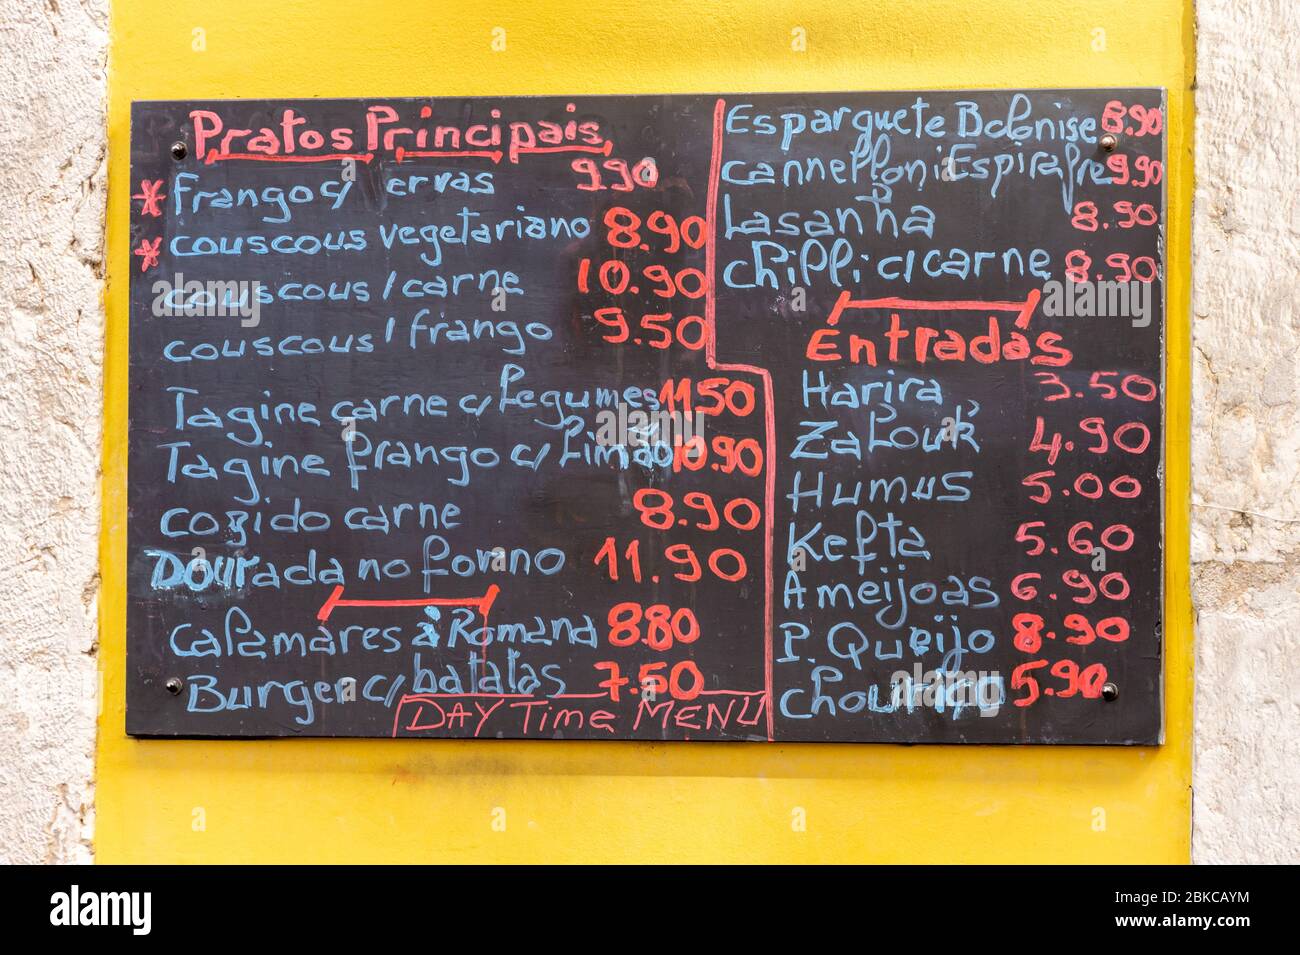 Pratos Principais
* frango c/ ervas 9.90
* couscous vegetariano 8.90
couscous / carne 10.90
couscous / frango 9.50
Tagine carne c/ legumes 11.50
Tagine frango c/ limão 10.90
cozido carne 8.90
Dourada no forno 11.90
calamares à Romana 8.80
Burger c/ batatas 7.50
DAY Time MENU
Esparguete Bolonise 8.90
cannelloni Espinafre 9.90
Lasanha 8.90
chilli c/ carne 8.90
Entradas
Harira 3.50
Zalouk 4.90
Humus 5.00
Kefta 5.60
Ameijoas 6.90
P. Queijo 8.90
chouriço 5.90
alamy
Image ID: 2BKCAYM
www.alamy.com